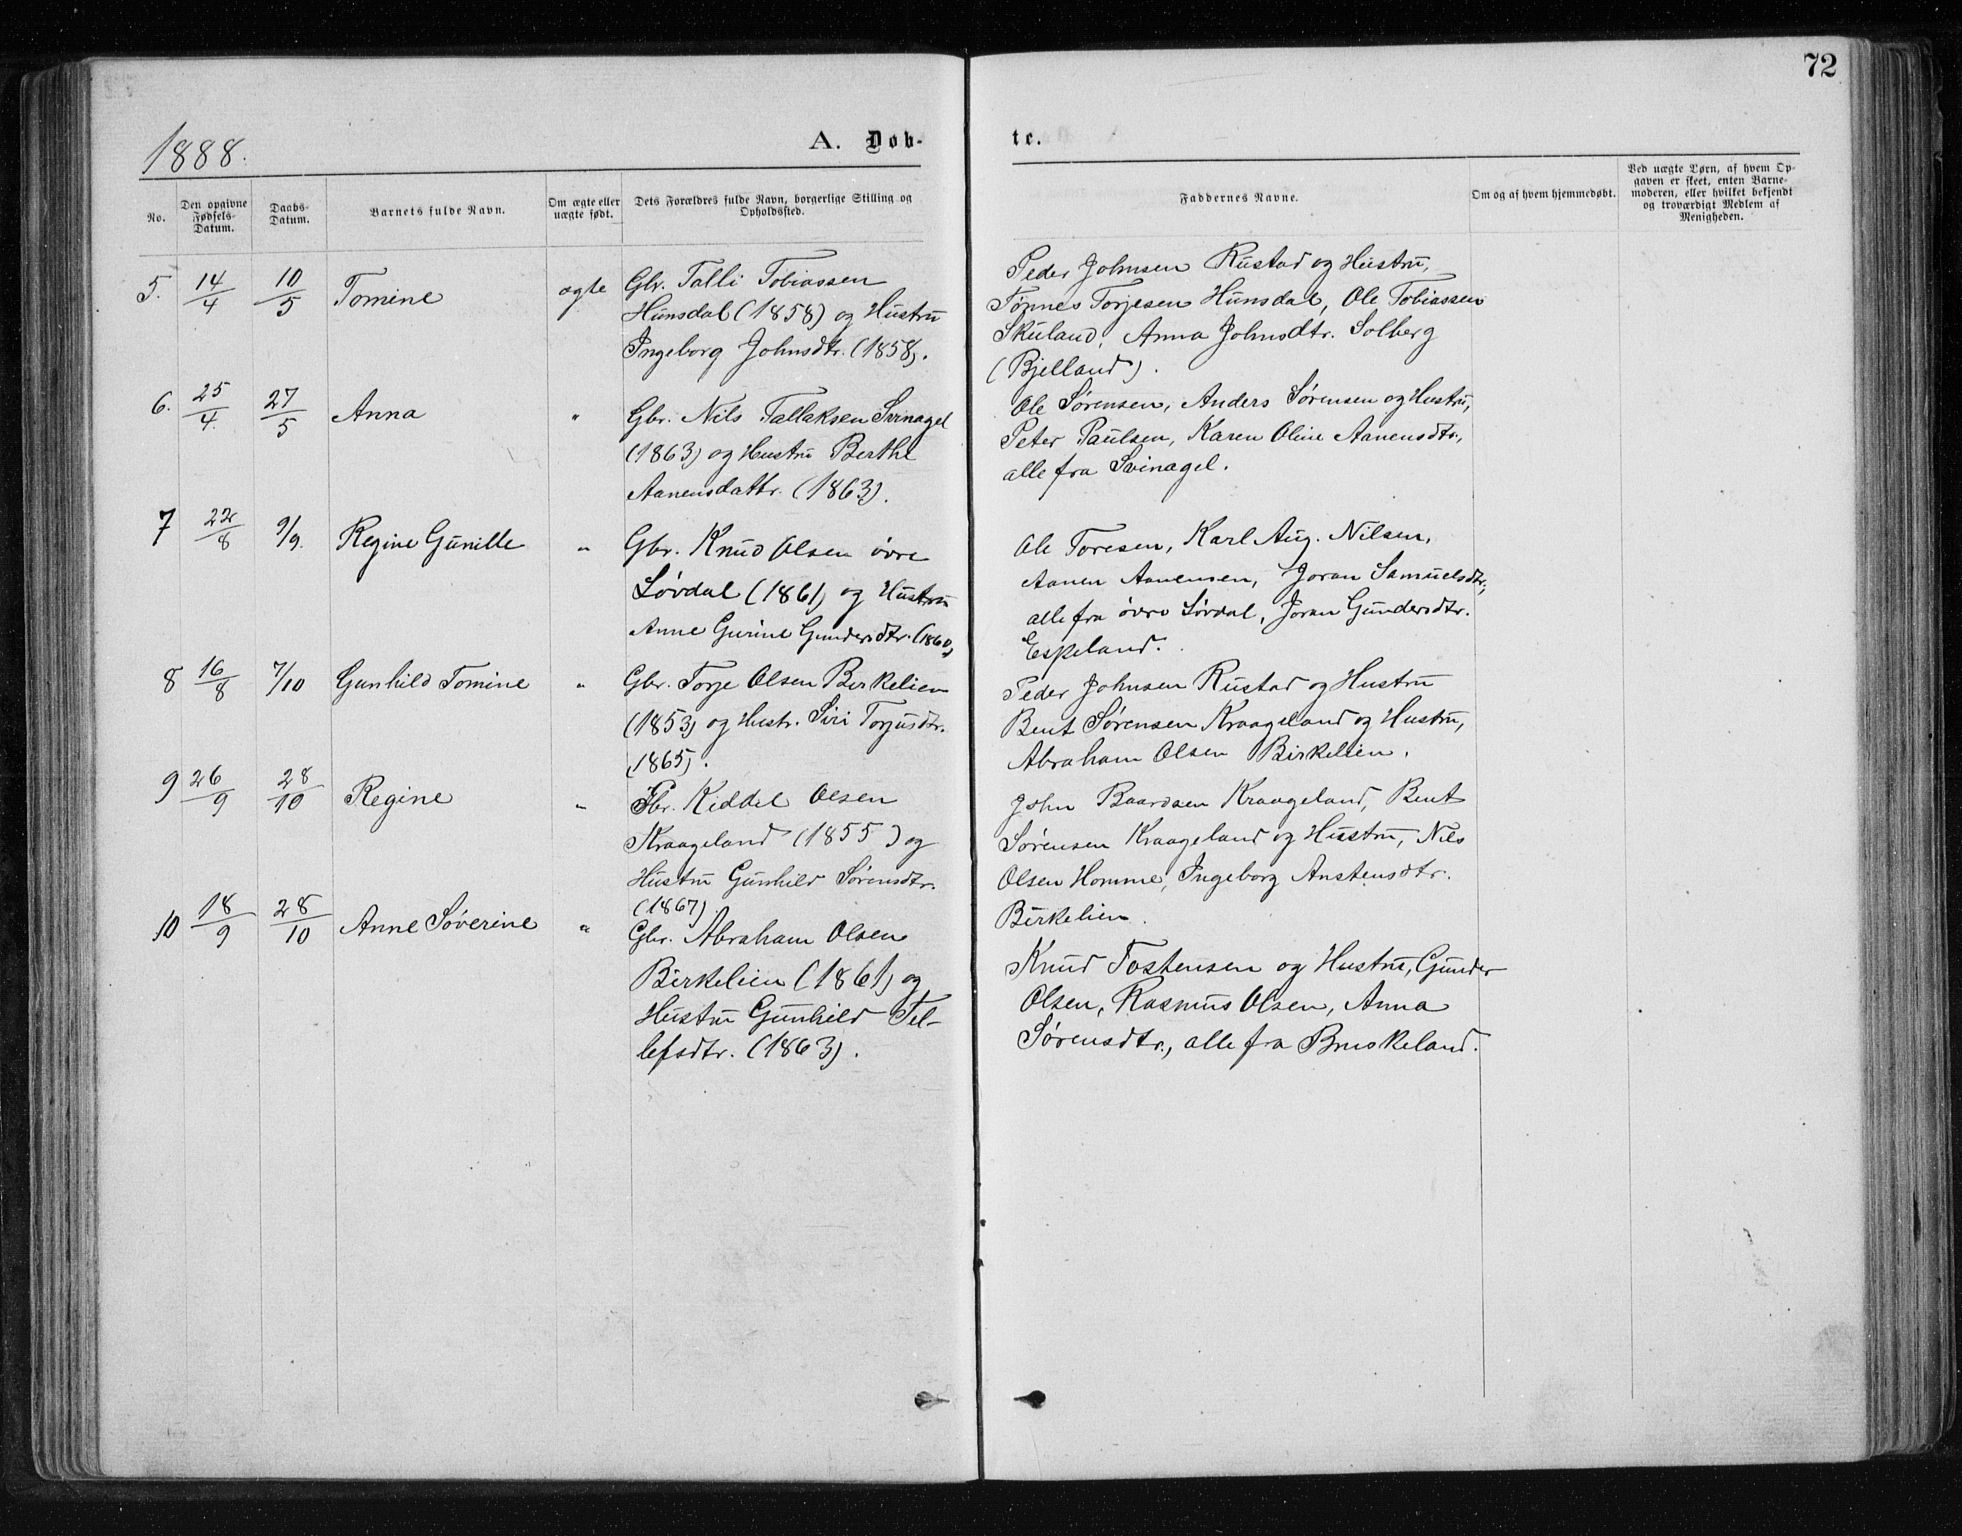 72
1888.
A. Døb-
te.
No.
Den opgivne Fødsels-Datum.
Daabs-Datum.
Barnets fulde Navn.
Om ægte eller uægte født.
Dets Forældres fulde Navn, borgerlige Stilling og Opholdssted.
Faddernes Navne.
Om og af hvem hjemmedøbt.
Ved uægte Børn, af hvem Opgaven er skeet, enten Barnemoderen, eller hvilket bekjendt og troværdigt Medlem af Menigheden.
5. 14/4 10/5 Tomine ægte Gbr. Talli Tobiassen
Hunsdal (1858) og Hustru
Ingeborg Johnsdtr. (1858).
Peder Johnsen Rustad og Hustru,
Tønnes Torjesen Hunsdal, Ole Tobiassen
Skuland, Anna Johnsdtr. Solberg
(Bjelland).
6. 25/4 27/5 Anna " Gbr. Nils Tallaksen Svinagel
(1863) og Hustru Berthe
Aanensdattr. (1863).
Ole Sørensen, Anders Sørensen og Hustru,
Peter Paulsen, Karen Oline Aanensdtr.,
alle fra Svinagel.
7 22/8 9/9. Regine Gunille " Gbr. Knud Olsen øvre
Løvdal (1861) og Hustru
Anne Gurine Gundersdtr. (1860)
Ole Toresen, Karl Aug. Nilsen,
Aanen Aanensen, Joran Samuelsdtr.,
alle fra øvre Løvdal, Joran Gundersdtr.
Espeland.
8 16/8 7/10 Gunhild Tomine " Gbr. Torje Olsen Birkelien
(1853) og Hustr. Siri Torjusdtr.
(1865).
Peder Johnsen Rustad og Hustru
Bent Sørensen Kraageland og Hustru,
Abraham Olsen Birkelien.
9 26/9 28/10 Regine " Gbr. Kiddel Olsen
Kraageland (1855) og
Hustru Gunhild Sørensdtr.
(1867)
John Baardsen Kraageland, Bent
Sørensen Kraageland og Hustru, Nils
Olsen Homme, Ingeborg Anstensdtr.
Birkelien.
10 18/9 28/10 Anne Søverine " Gbr. Abraham Olsen
Birkelien (1861) og
Hustru Gunhild Tel-
lefsdtr. (1863).
Knud Tostensen og Hustru, Gunder
Olsen, Rasmus Olsen, Anna
Sørensdtr., alle fra Bruskeland.